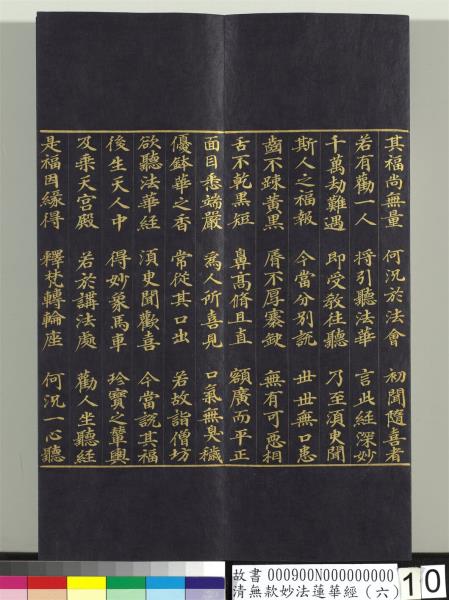 其福尚無量 何況於法會 初聞隨喜者
若有勸一人 將引聽法華 言此經深妙
千萬劫難遇 即受教往聽 乃至須臾聞
斯人之福報 今當分別說 世世無口患
齒不踈黃黑 脣不厚褰缺 無有可惡相
舌不乾黑短 鼻高脩且直 額廣而平正
面目悉端嚴 為人所喜見 口氣無臭穢
優鉢華之香 常從其口出 若故詣僧坊
欲聽法華經 須臾聞歡喜 今當說其福
後生天人中 得妙象馬車 珍寶之輦輿
及乘天宮殿 若於講法處 勸人坐聽經
是福因緣得 釋梵轉輪座 何況一心聽
故書 000900N000000000
清無款妙法蓮華經（六）
10